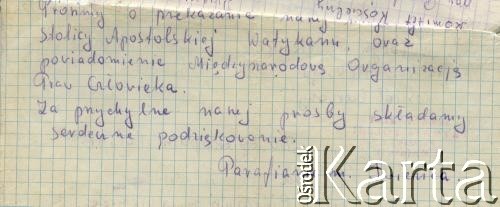 Prosimy o przekazanie naszej
Stolicy Apostolskiej Watykanu, oraz
powiadomienie Międzynarodową Organizację
Praw Człowieka.
Za przychylne naszej prośby składamy
serdeczne podziękowanie.
Parafianie m.
ośrodek
Karta